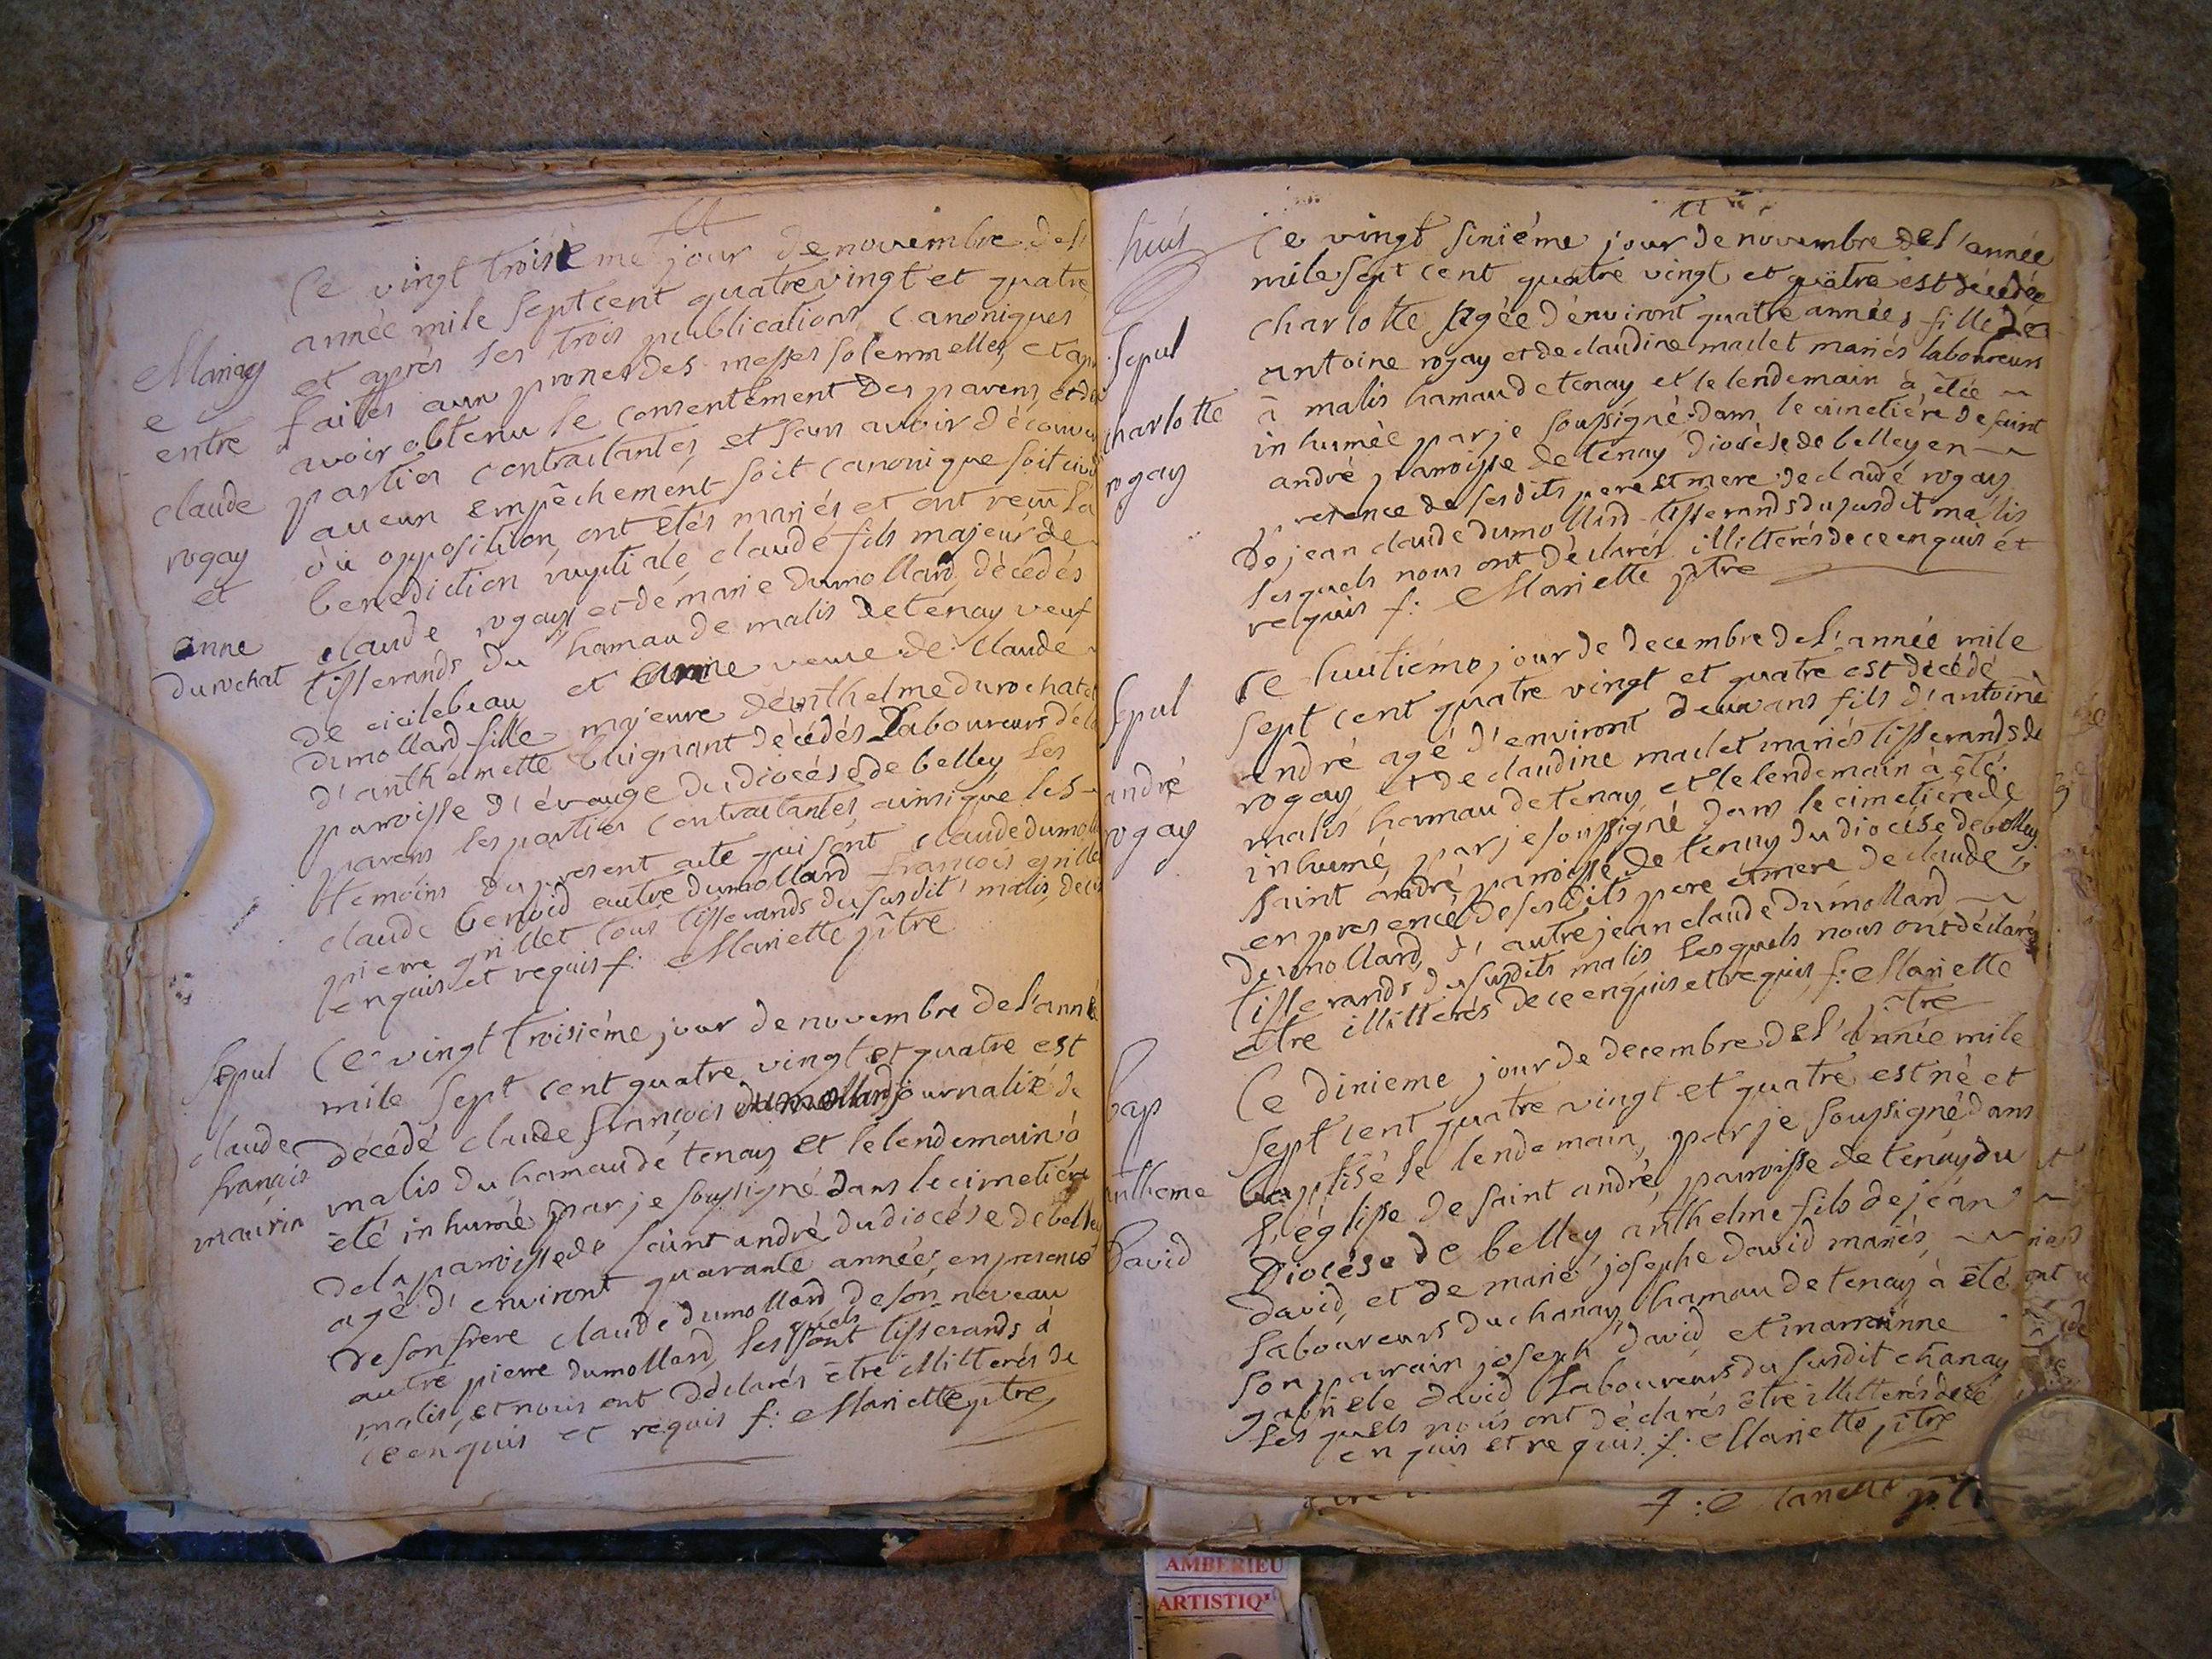 Ce vingt troisieme jour de novembre de l'
année mile sept cent quatre vingt et quatre
et après les trois publications canoniques
faites aux prones des messes solennelles, et après
avoir obtenu le consentement des parens, et des
parties contractantes, et sans avoir découvert
aucun empêchement soit canonique soit civil
ou opposition, ont étés mariés et ont reçu la
benediction nuptiale, claude fils majeur de
claude rogay et de marie dumollard, décédés
tisserands du hamau de malis de tenay veuf
de cicile beau et anne veuve de claude
dumollard fille majeure d'enthelme durochat et
d'anthelmette buignant décédés Laboureurs de la
paroisse d'évouge du diocése de belley les
parens les parties contractantes, ainsi que les
temoins du present acte qui sont claude dumollard
claude benoid autre dumollard françois grillet
pierre grillet tous tisserands du susdit malis, de ce
enquis et requis f: Mariette ptre
Mariag
e
entre
claude
rogay
et
anne
durochat
Ce vingt troisiéme jour de novembre de l'année
mile sept cent quatre vingt et quatre est
décédé claude françois dumollard journalié de
malis du hamau de tenay et le lendemain à
été inhumé par je soussigné dans le cimetiére
de la paroisse de saint andré du diocése de belley
agé d'environt quarante années, en presence
de son frere claude dumollard de son neveau
autre pierre dumollard, lesquels sont tisserands à
malis, et nous ont déclarés étre illitterés de
ce enquis et requis f: Mariette ptre
Sepul
claude
françois
maurin
Ce vingt sixiéme jour de novembre de l'année
mile sept cent quatre vingt et quatre est décédée
charlotte agée d'environt quatre années fille de
antoine rogay et de claudine maclet mariés laboureurs
à malis hamau de tenay et le lendemain à étée
inhumée par je soussigné dans le cimetiére de saint
andré paroisse de tenay diocése de belley en
presence de ses dits pere et mere de claude rogay
de jean claude dumollard tisserands du susdit malis
lesquels nous ont déclarés illitterés de ce enquis et
requis f: Mariette ptre
Sepul
charlotte
rogay
Ce huitiéme jour de decembre de l'année mile
sept cent quatre vingt et quatre est décédé
andré agé d'environt deux ans fils d'antoine
rogay et de claudine maclet mariés tisserands de
malis hamau de tenay et le lendemain à été
inhumé par je soussigné dans le cimetiere de
saint andré paroisse de tenay du diocése de belley
en presence de ses dits pere et mere de claude
dumollard, d'autre jean claude dumollard
tisserands du susdits malis lesquels nous ont déclarés
etre illitterés de ce enquis et requis f: Mariette
ptre
Sepul
andré
rogay
Ce dixieme jour de decembre de l'année mile
sept cent quatre vingt et quatre est né et
baptisé le lendemain, par je soussigné dans
l'église de saint andré, paroisse de tenay du
diocése de belley anthelme fils de jean
david, et de marie josephe david mariés,
laboureurs du chanay hamau de tenay à été
son parrain joseph david et marrainne
gabriele david laboureurs du susdit chanay
lesquels nous ont déclarés être illitterés de ce
enquis et requis. f: Mariette ptre
bap
antheme
David
AMBERIEU
ARTISTIQ